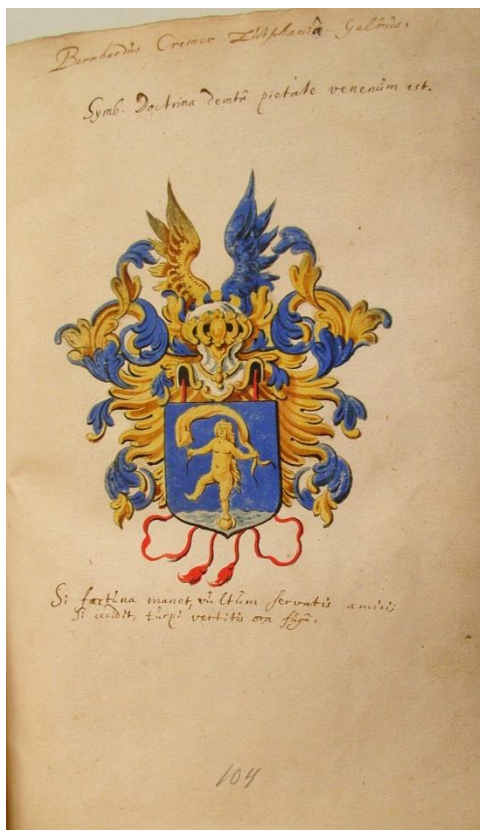 Bernhardus Cremer Zutphaniâ Geltrus.
Symb. Doctrina demtâ pietate venenum est.
Si fortuna manet, vultum servatis amici;
Si cecidit, turpi vertitis ora fugâ.
104